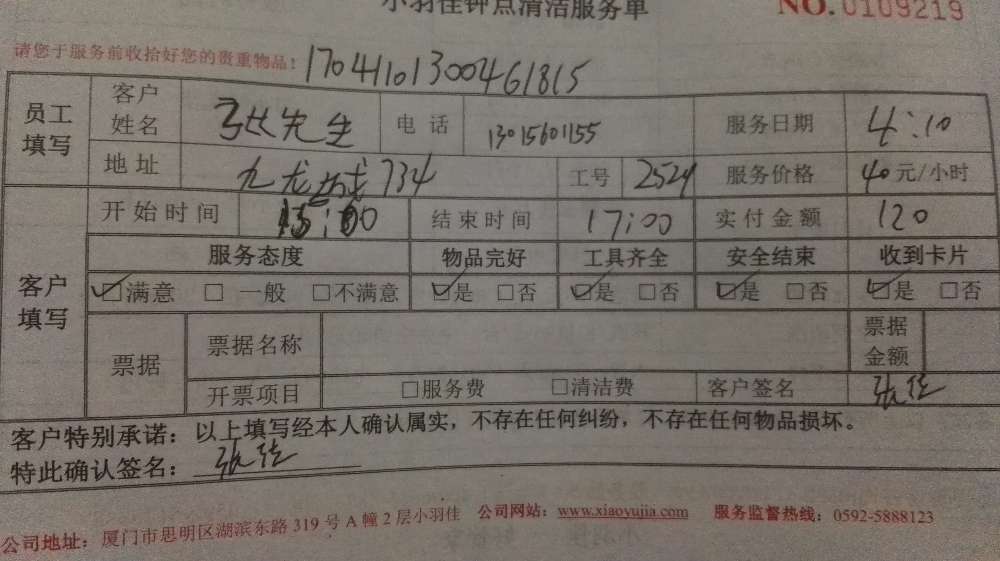 小羽佳钟点清洁服务单 NO.0109219
请您于服务前收拾好您的贵重物品! 170411013004618​15
员工填写 客户姓名 张先生 电话 13015601155 服务日期 4:10
地址 九龙城734 工号 2524 服务价格 40元/小时
客户填写 开始时间 15:00 结束时间 17:00 实付金额 120
服务态度 物品完好 工具齐全 安全结束 收到卡片
☑满意 □一般 □不满意 ☑是 □否 ☑是 □否 ☑是 □否 ☑是 □否
票据 票据名称 票据金额
开票项目 □服务费 □清洁费 客户签名 张
客户特别承诺：以上填写经本人确认属实，不存在任何纠纷，不存在任何物品损坏。
特此确认签名： 张
公司地址：厦门市思明区湖滨东路 319 号 A 幢 2 层小羽佳 公司网站：www.xiaoyujia.com 服务监督热线：0592-5888123